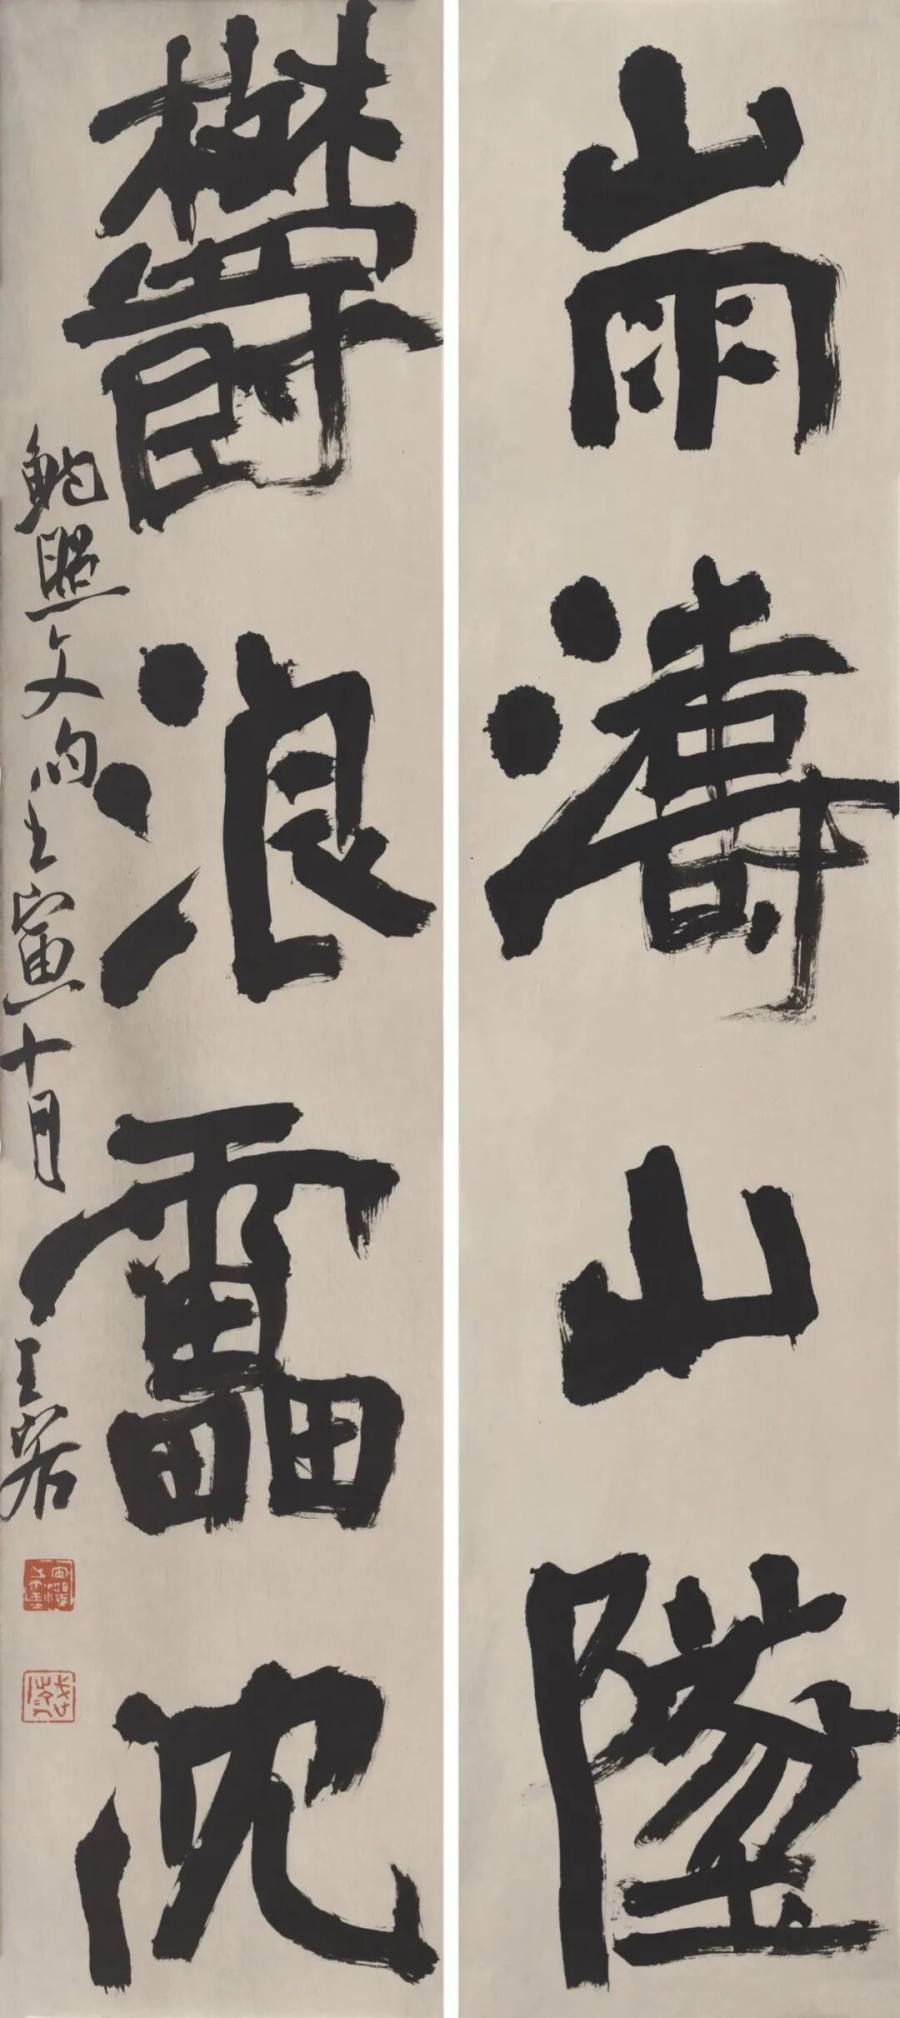 崩濤山墜
鬱浪靁沈
鮑照文句壬寅十月王